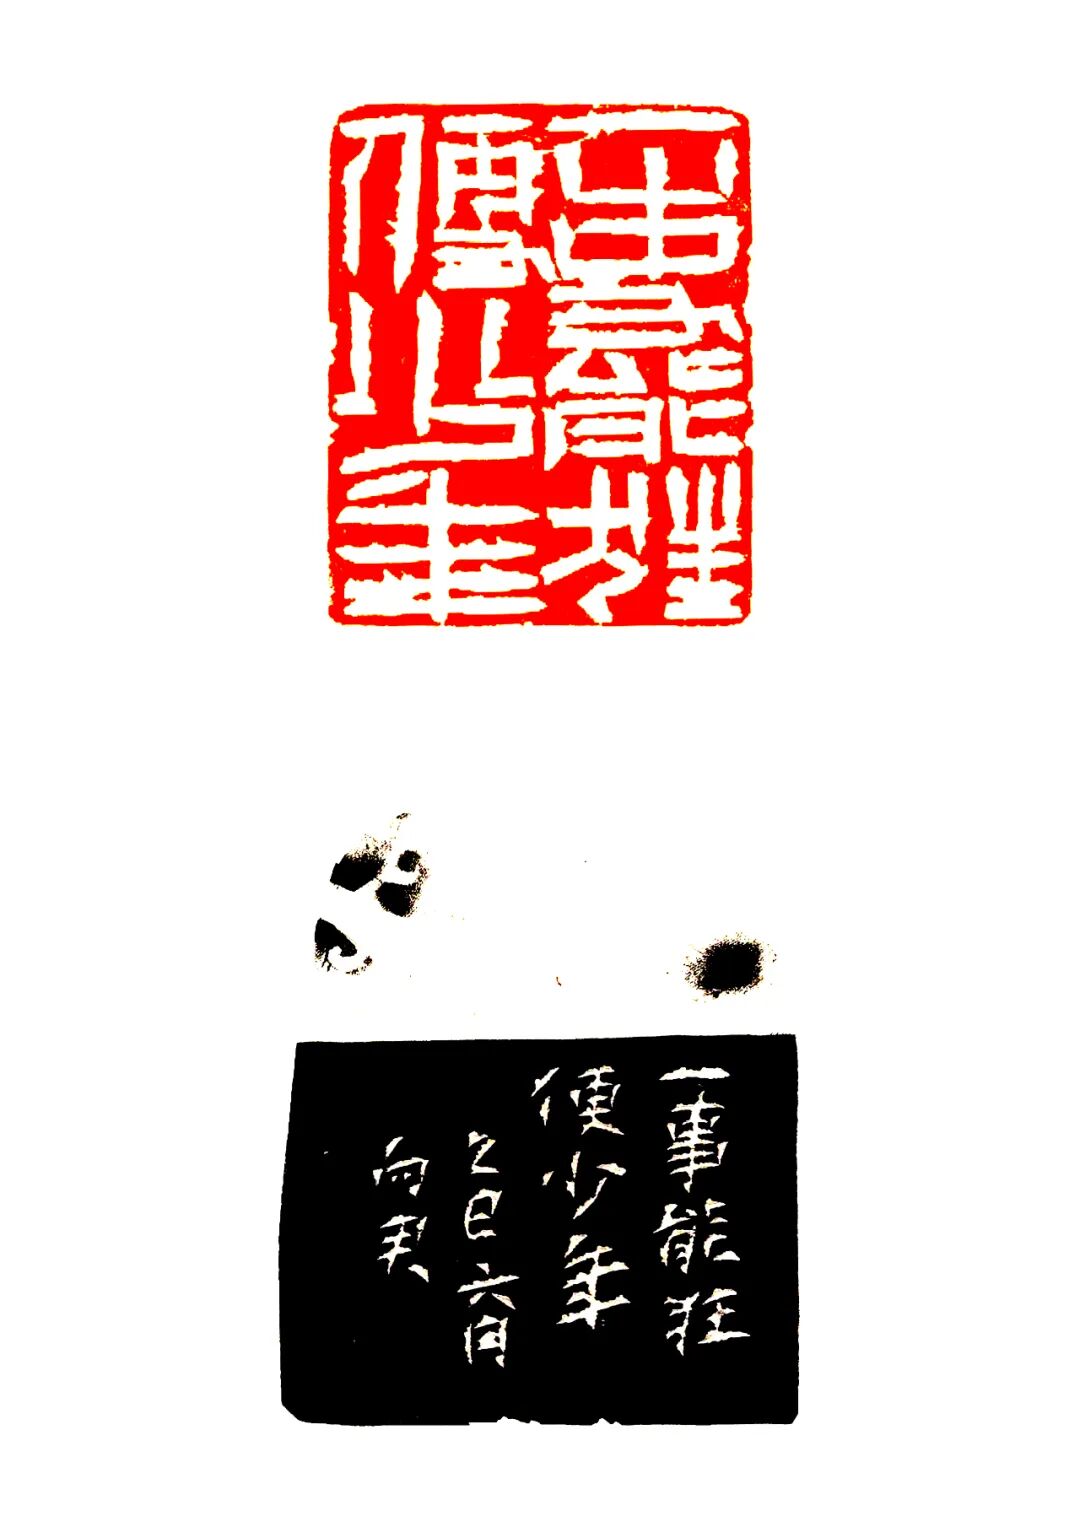 一事能狂
便少年
一事能狂
便少年
乙巳六月
向契